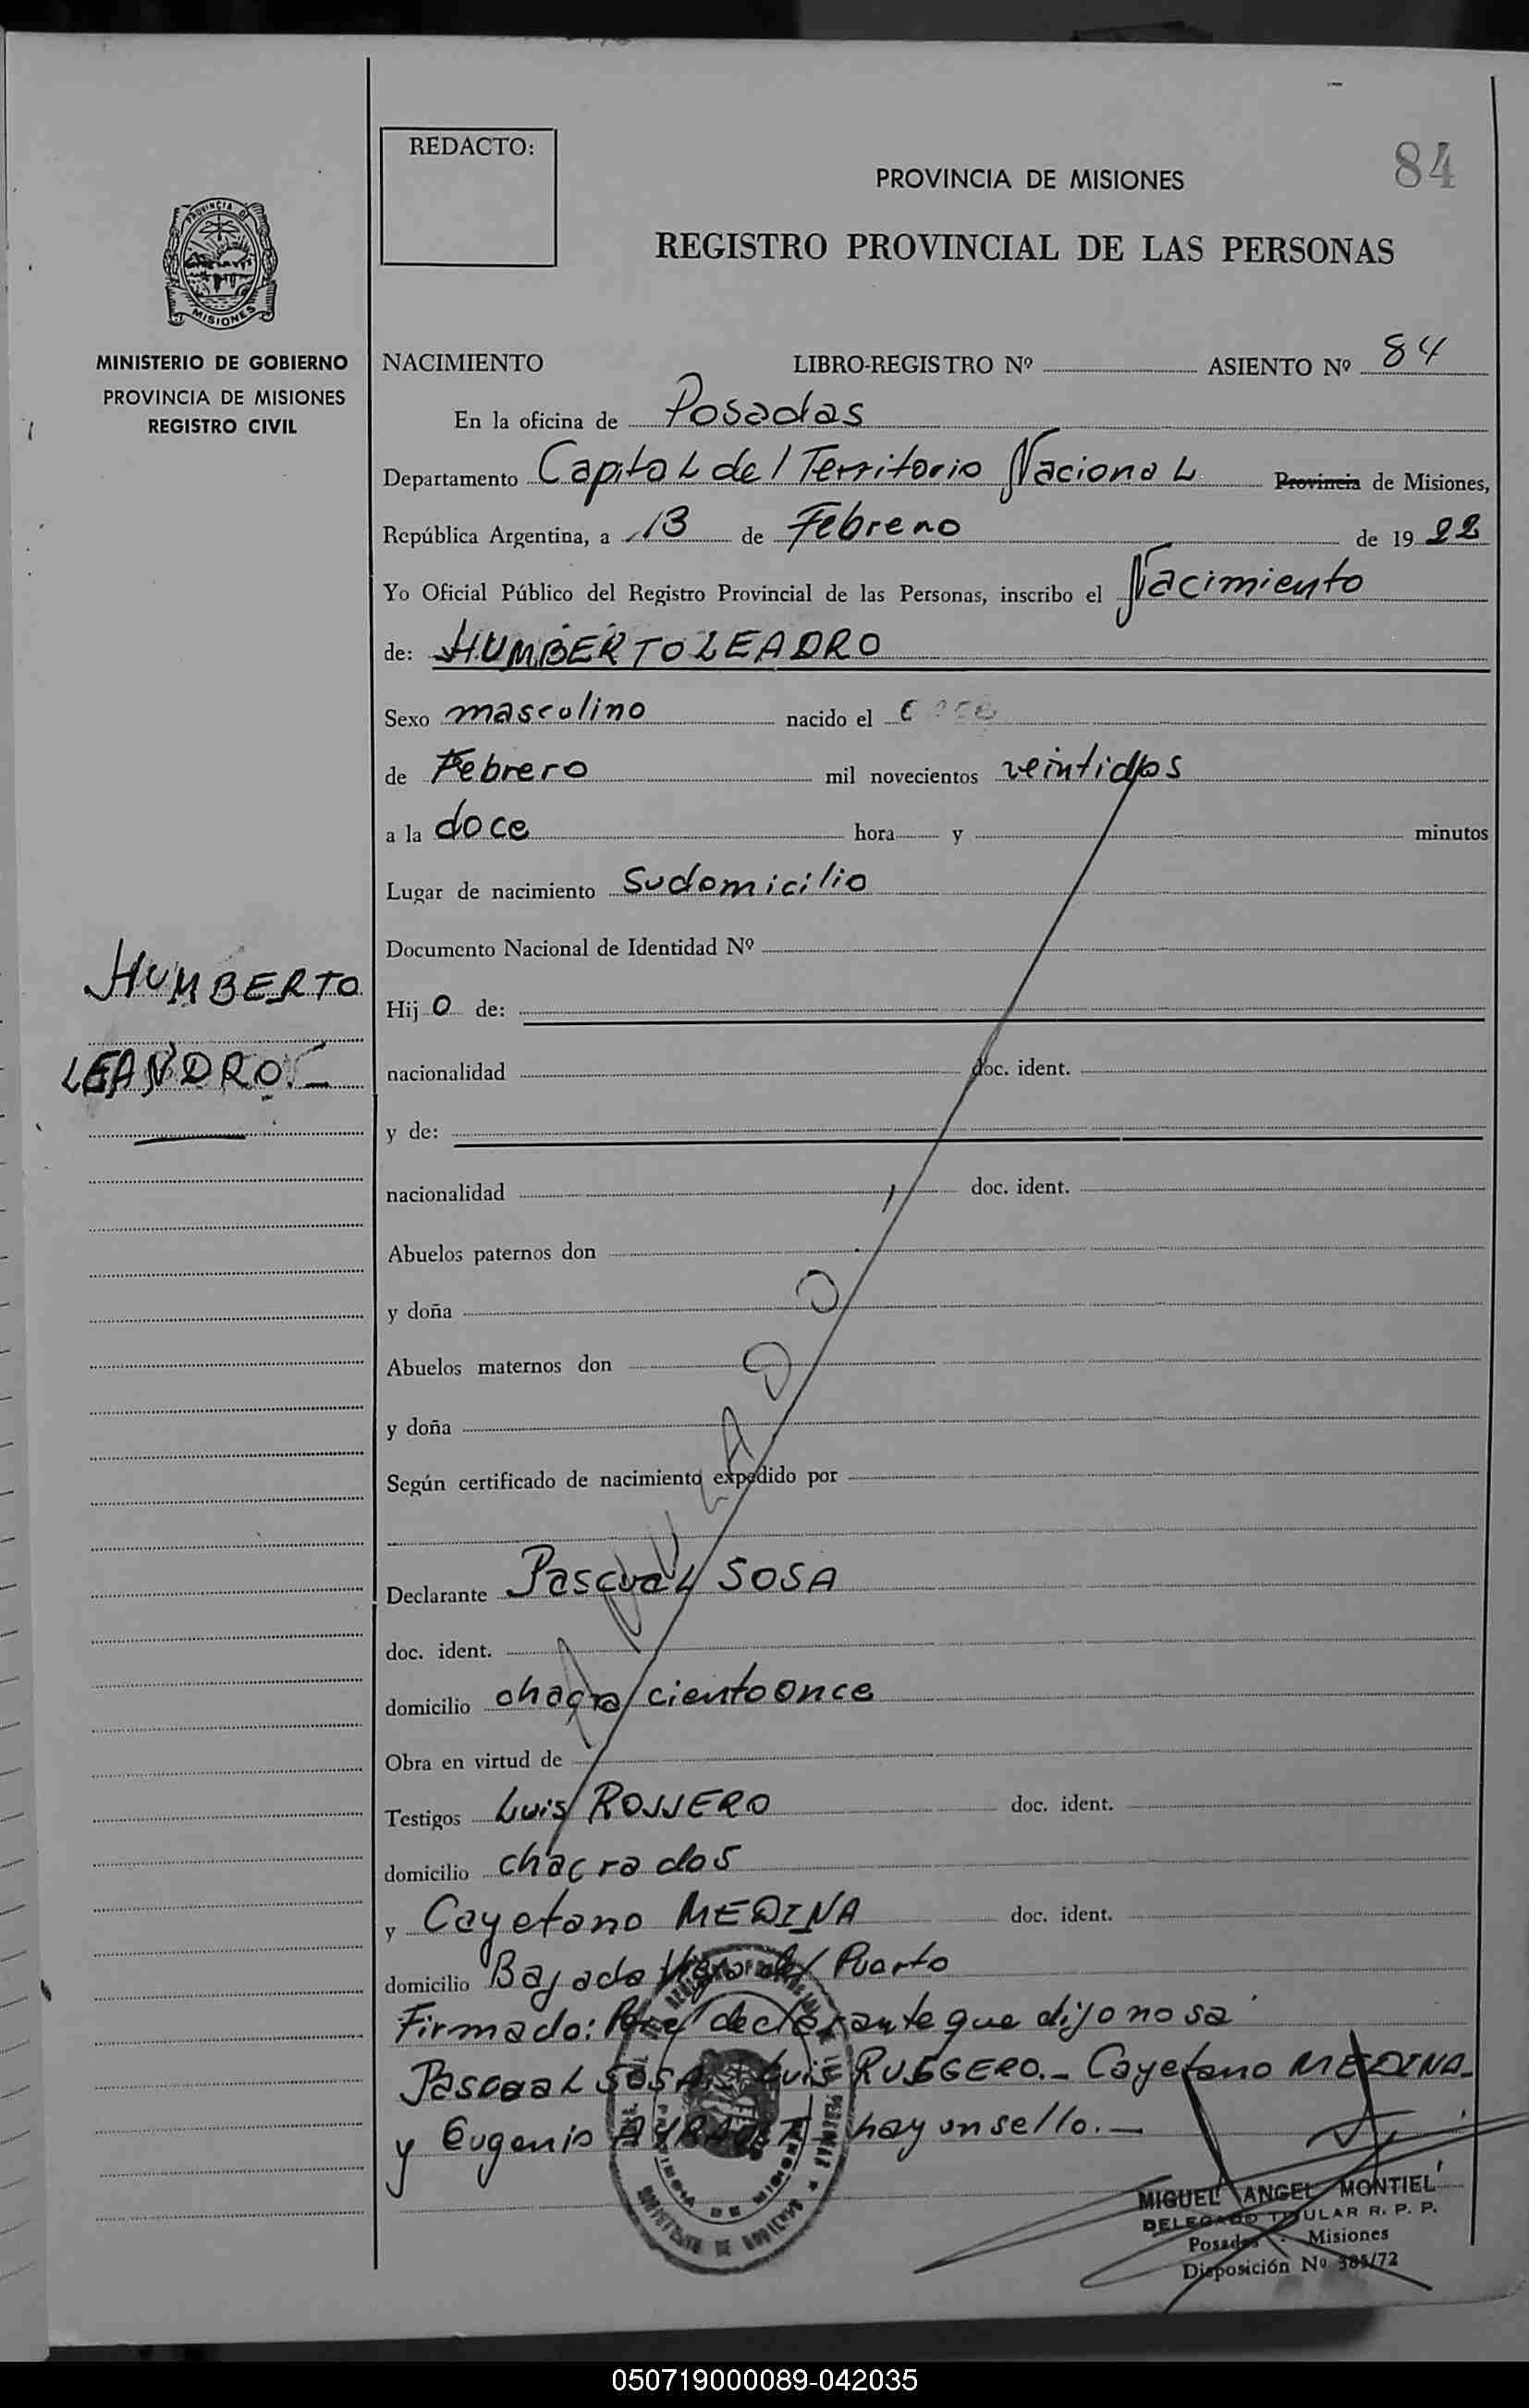 REDACTO:
84
PROVINCIA DE MISIONES
REGISTRO PROVINCIAL DE LAS PERSONAS
PROVINCIA DE
MISIONES
MINISTERIO DE GOBIERNO
PROVINCIA DE MISIONES
REGISTRO CIVIL
NACIMIENTO LIBRO-REGISTRO Nº ASIENTO Nº 84
En la oficina de Posadas
Departamento Capital del Territorio Nacional Provincia de Misiones,
República Argentina, a 13 de Febrero de 1922
Yo Oficial Público del Registro Provincial de las Personas, inscribo el Nacimiento
de: HUMBERTO LEADRO
Sexo masculino nacido el
de Febrero mil novecientos veintidos
a la doce hora y minutos
Lugar de nacimiento Su domicilio
Documento Nacional de Identidad Nº
HUMBERTO
LEANDRO.-
Hijo de:
nacionalidad doc. ident.
y de:
nacionalidad doc. ident.
Abuelos paternos don
y doña
Abuelos maternos don
y doña
Según certificado de nacimiento expedido por
ANULADO
Declarante Pascual SOSA
doc. ident.
domicilio chagra ciento once
Obra en virtud de
Testigos Luis doc. ident.
domicilio chacra dos
y Cayetano MEDINA doc. ident.
domicilio Bajada Puerto
Firmado: declarante que dijo no sa
Pascual SOSA.- Luis RUGGERO.- Cayetano MEDINA-
y Eugenio hay un sello.-
MIGUEL ANGEL MONTIEL
DELEGADO TITULAR R. P. P.
Posadas - Misiones
Disposición Nº 385/72
050719000089-042035